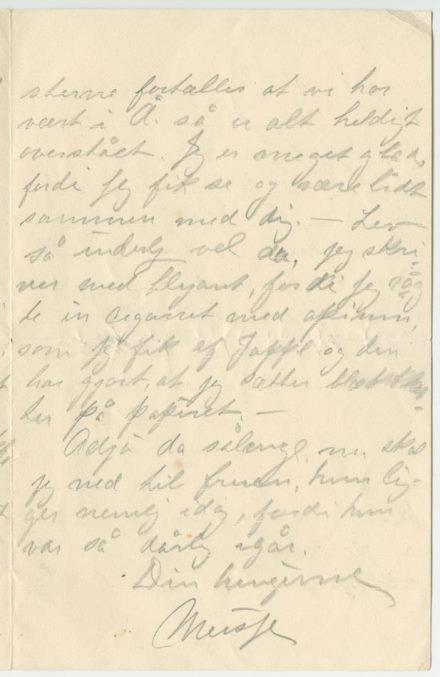 sterne fortælles at vi har
vært i Å. så er alt heldigt
overstået. Jeg er meget glad,
fordi jeg fik se og være lidt
sammen med dig. — Lev
så inderlig vel du, jeg skri-
ver med blyant, fordi jeg røg
te en cigarret med opium,
som jeg fik af Jappe og den
har gjort, at jeg sætter
ter på papiret. —
Adjø da sålænge, nu skal
jeg ned til fruen, hun lig-
ger nemlig idag, fordi hun
var så dårlig igår.
Din hengivne